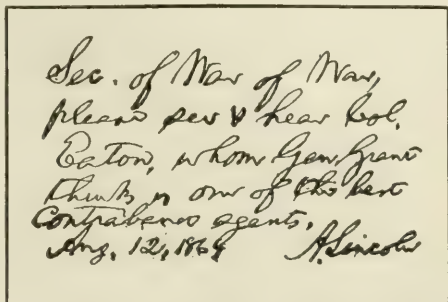 Sec. of War of War,
please see & hear Col.
Eaton, whom Gen. Grant
thinks is one of the best
Contraband agents.
Aug. 12, 1864 A. Lincoln